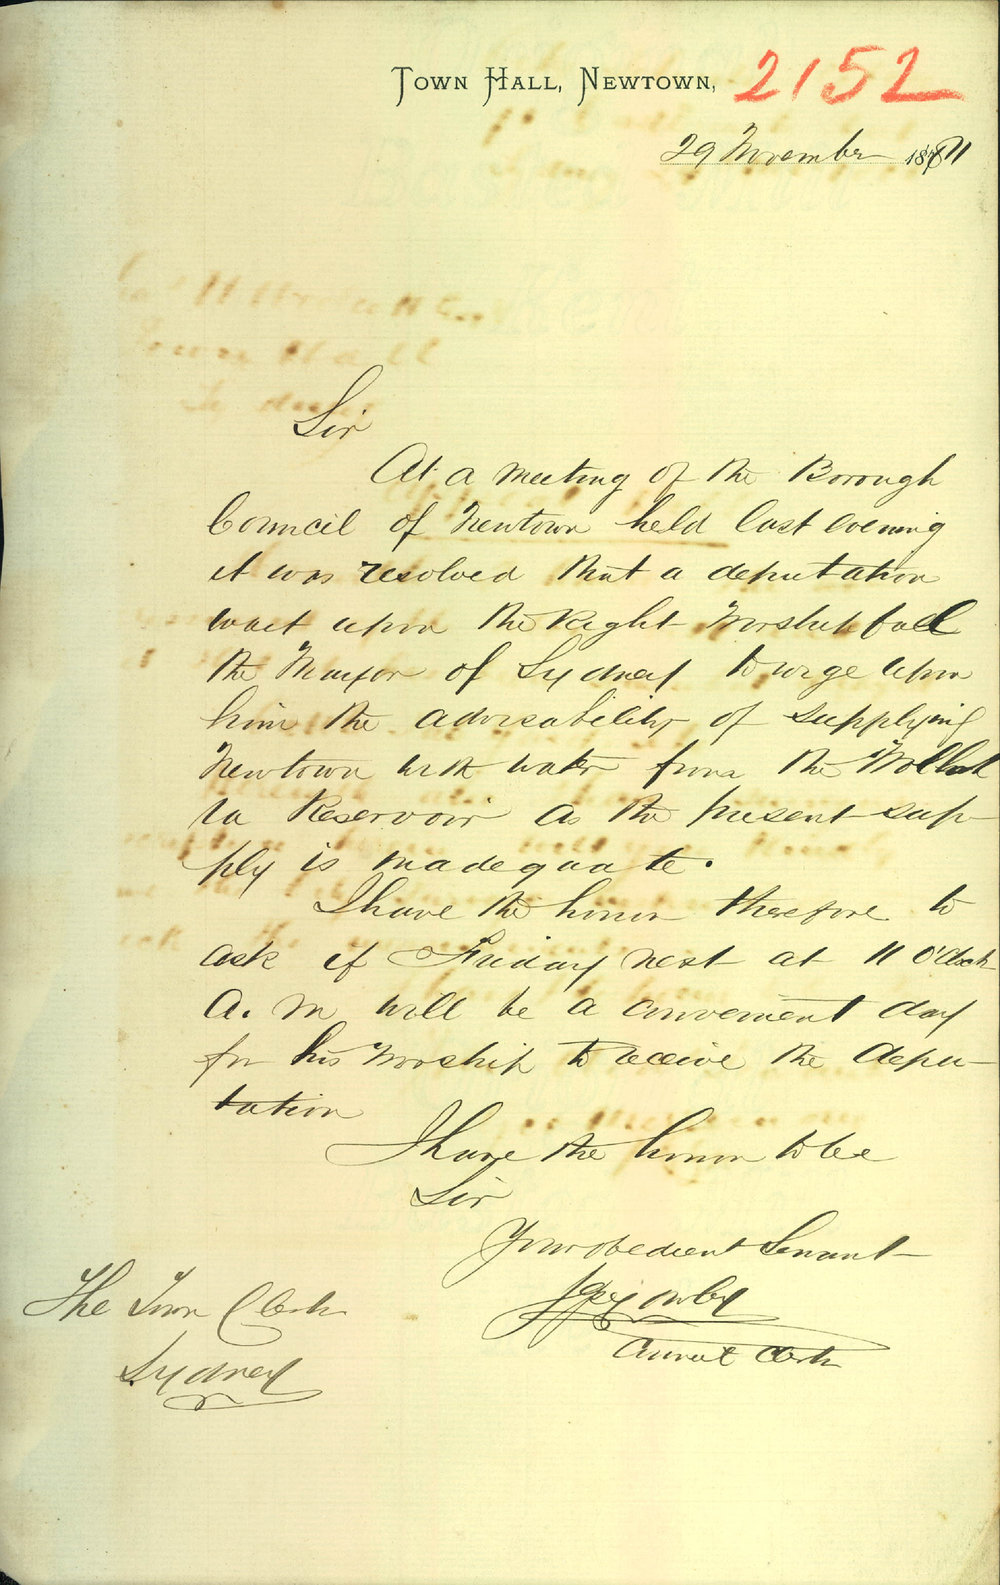 TOWN HALL, NEWTOWN, 2152
29 November 1871
Sir
At a meeting of the Borough
Council of Newtown held last evening
it was resolved that a deputation
wait upon the Right Worshipfull
the Mayor of Sydney to urge upon
him the advisability of supplying
Newtown with water from the Wollah
ra Reservoir as the present sup-
ply is inadequate.
I have the honor therefore to
ask if Friday next at 11 O'Clock
A. M will be a convenient day
for his Worship to receive the depu-
tation
I have the honor to be
Sir
Your obedient Servant
Council Clerk
The Town Clerk
Sydney